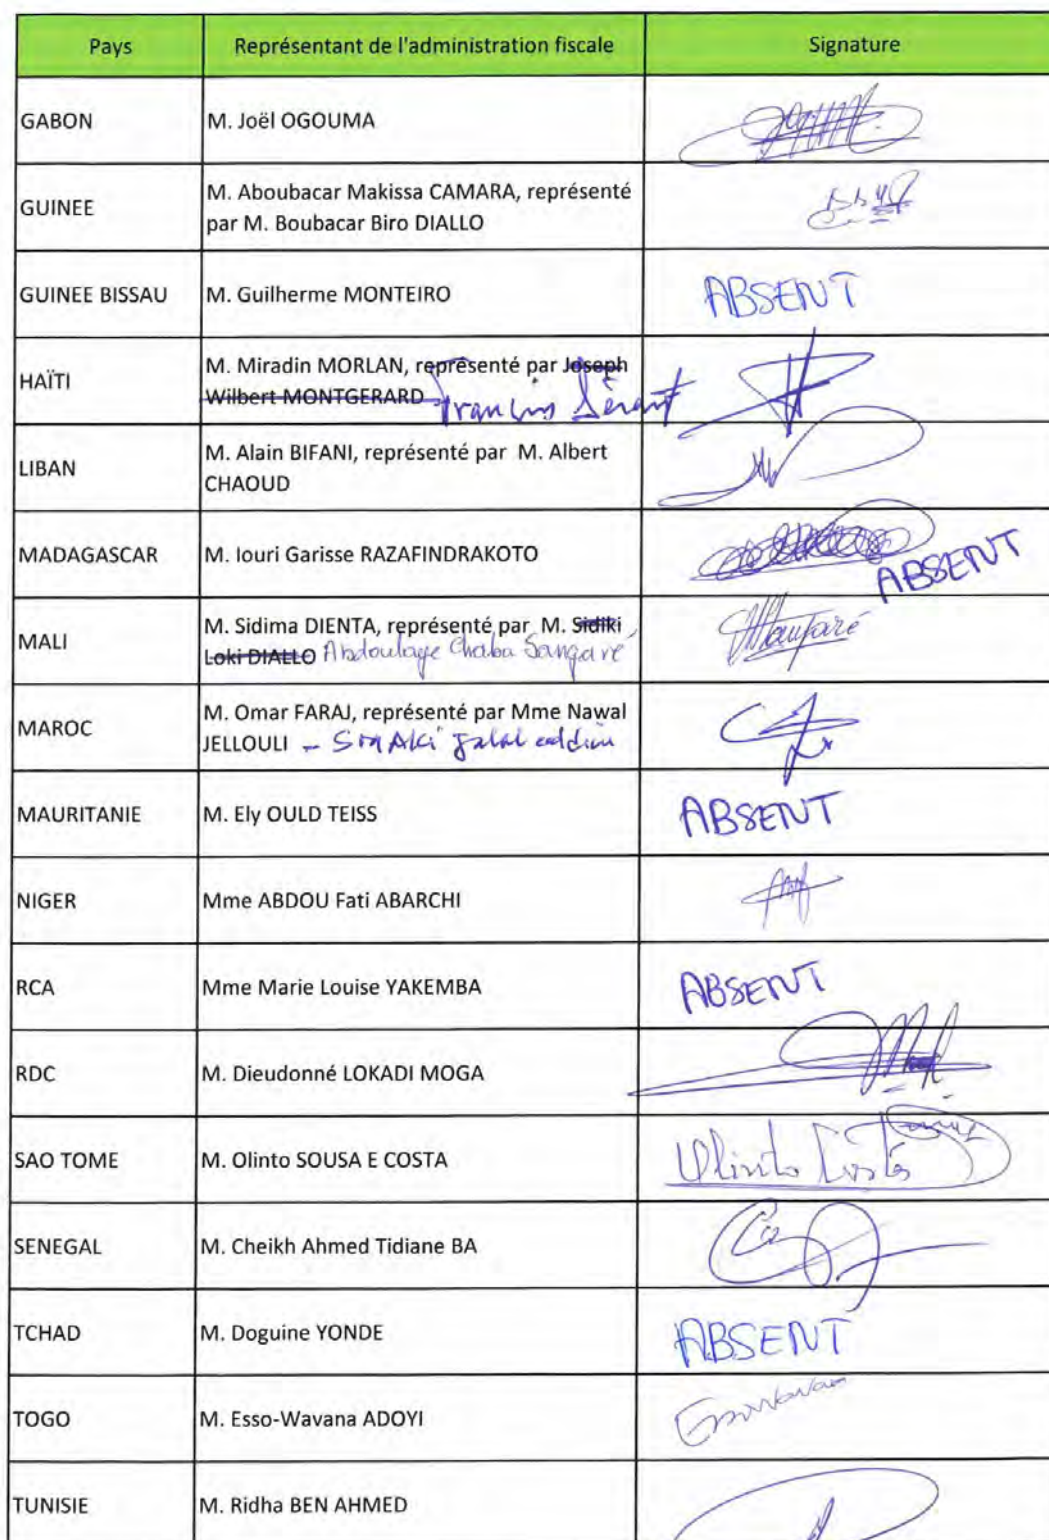 Pays Représentant de l'administration fiscale Signature
GABON M. Joël OGOUMA
GUINEE M. Aboubacar Makissa CAMARA, représenté
par M. Boubacar Biro DIALLO
GUINEE BISSAU M. Guilherme MONTEIRO ABSENT
HAÏTI M. Miradin MORLAN, représenté par Joseph
Wilbert MONTGERARD François
LIBAN M. Alain BIFANI, représenté par M. Albert
CHAOUD
MADAGASCAR M. Iouri Garisse RAZAFINDRAKOTO ABSENT
MALI M. Sidima DIENTA, représenté par M. Sidiki
Loki DIALLO Abdoulaye Chaba Sangaré
MAROC M. Omar FARAJ, représenté par Mme Nawal
JELLOULI - Jalal eddine
MAURITANIE M. Ely OULD TEISS ABSENT
NIGER Mme ABDOU Fati ABARCHI
RCA Mme Marie Louise YAKEMBA ABSENT
RDC M. Dieudonné LOKADI MOGA
SAO TOME M. Olinto SOUSA E COSTA Olinto Costa
SENEGAL M. Cheikh Ahmed Tidiane BA
TCHAD M. Doguine YONDE ABSENT
TOGO M. Esso-Wavana ADOYI
TUNISIE M. Ridha BEN AHMED